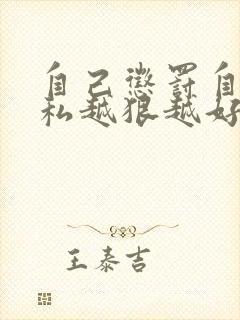 自己惩罚自
私越狠越好
王泰吉